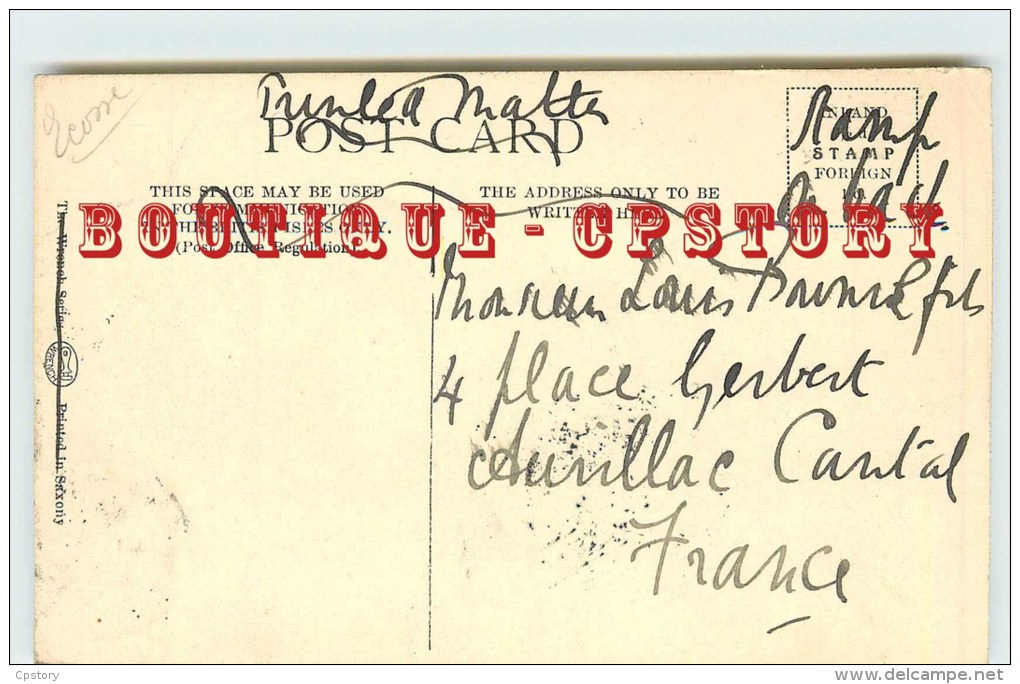 Ecosse
Printed Matter
POST CARD
Stamp
INLAND
STAMP
FOREIGN
THIS SPACE MAY BE USED
THE ADDRESS ONLY TO BE
BOUTIQUE - CPSTORY
(Post Office Regulation)
The Wrench Series
WRENCH
Printed in Saxony
Monsieur Louis & fils
4 place Gerbert
Aurillac Cantal
France
Cpstory
www.delcampe.net